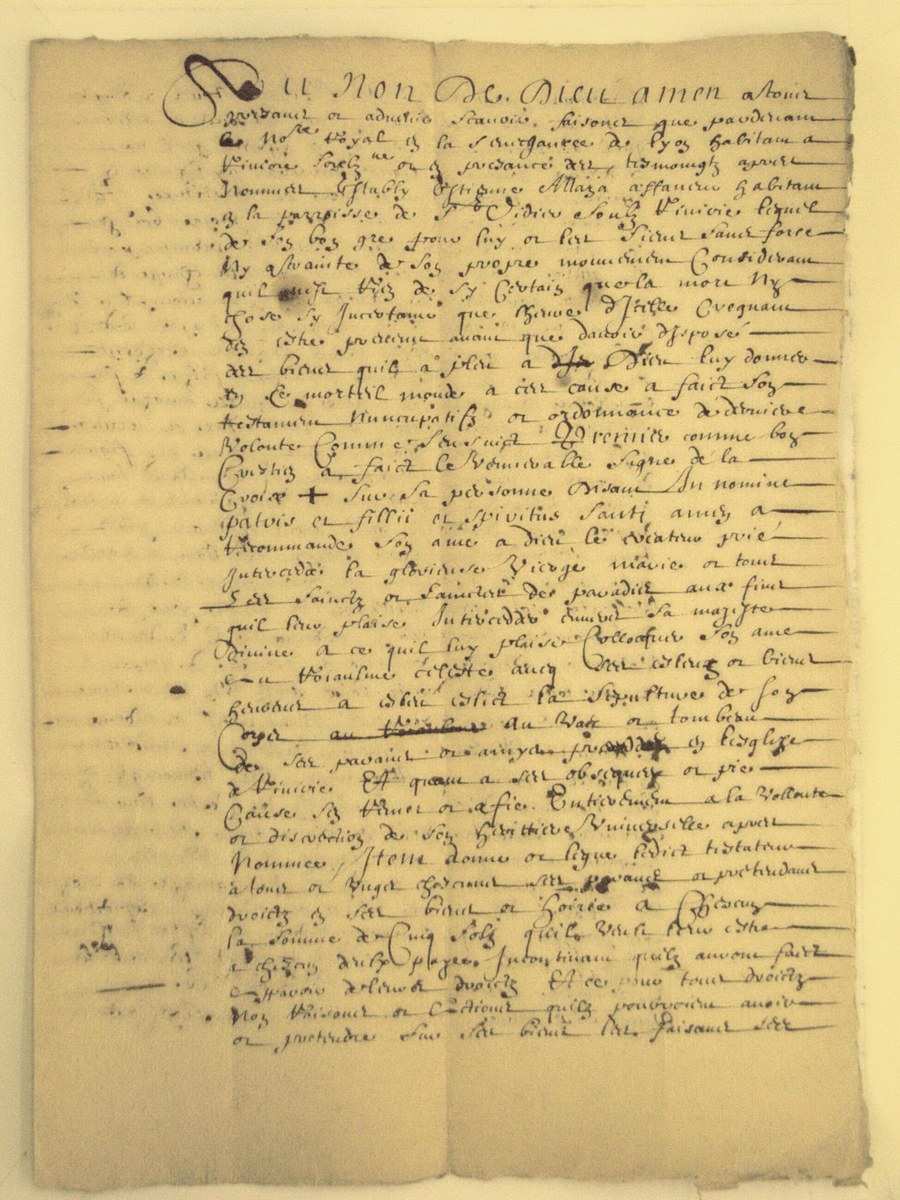 Au Non De Dieu amen a tous
presans et advenir scavoir faisons que pardevant
le no.re Royal en la seneschaucee de lyon habitant a
Rivirie soubz.ne et en presance des tesmoingtz apres
nommes estably Estienne Allaza affaneur habitant
en la parroisse de S.t Didier soubz Rivirie lequel
de son bon gre pour luy et les siens sans force
ny astrainte de son propre mouvement Considerant
quil nest Rien de sy Certain que la mort ny
chose sy Incertaine que lheure dIcelle Creignant
den estre prevenu avant que davoir disposé
des biens quil a pleu a Dieu luy donner
en Ce mortel monde a ces cause a faict son
testament Nuncupatifz et ordonnance de derniere
volonte Comme sensuict Premier comme bon
Crestien a faict le venerable signe de la
Croix + sur sa personne Disant In nomine
patris et fillii et spiritus santi amen a
Recommande son ame a dieu le createur prie
Interceder la glorieuse Vierge marie et tous
les sainctz et sainctes de paradis aux fins
quil leur plaise Interceder envers sa majeste
divine a ce quil luy plaise Collocquer son ame
au Roiaulme celeste avecq les esleuz et biens
heureux a esleu eslict la sepulture de son
Corps au Vas et tombeau
de ses parans et amys en lesglize
de Rivirie Et quant a ses obseques et pie
Cause sen Remet et se fie Entierement a la vollonte
et discretion de son heritiere Universelle apres
nommee Item donne et legue ledict testateur
a tous et Unges chescuns ses parans et pretendans
droictz en ses biens et hoirie a Chescung
la somme de Cinq solz quil veult leur estre
a chescun deulx payee Incontinant quilz auront faict
apparoir de leurs droictz Et ce pour tous droictz
non Raisons et actions quilz pourroient avoir
et pretendre sur ses biens les faisans ses